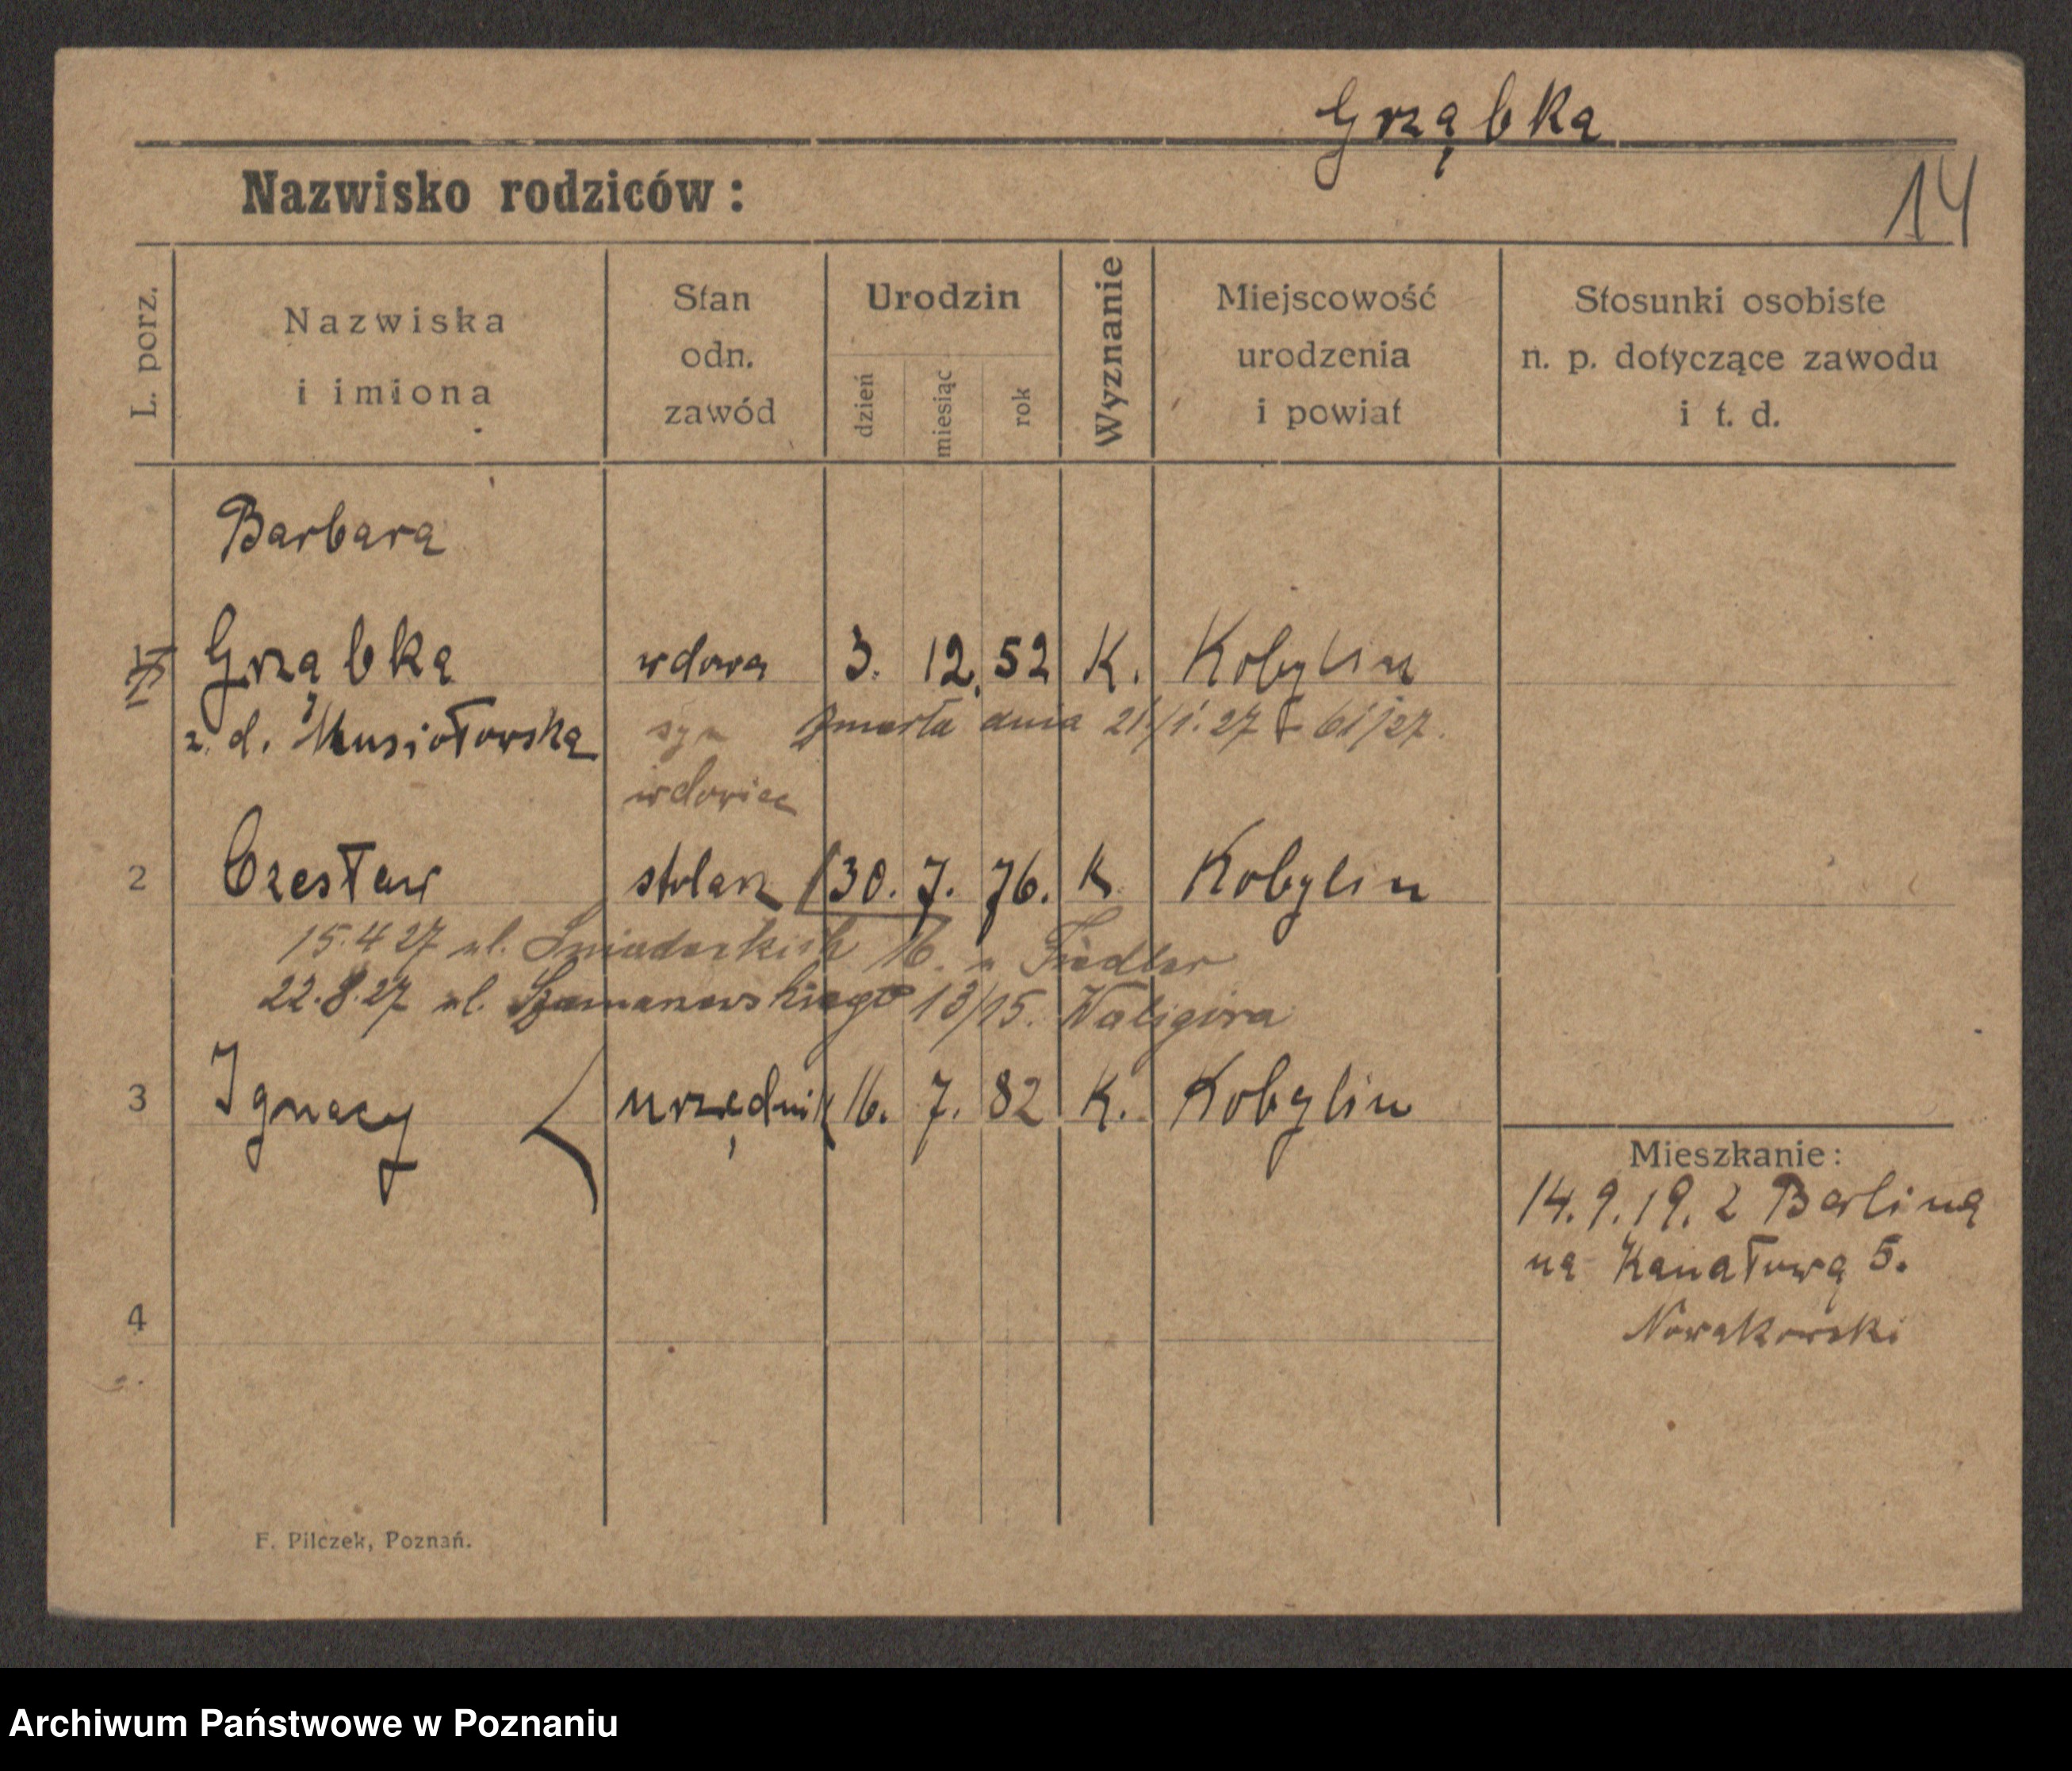 Grząbka
Nazwisko rodziców:
14
L. porz.
Nazwiska
i imiona
Stan
odn.
zawód
Urodzin
dzień
miesiąc
rok
Wyznanie
Miejscowość
urodzenia
i powiat
Stosunki osobiste
n. p. dotyczące zawodu
i t. d.
Barbara
Grząbka wdowa 3. 12. 52 K. Kobylin
z. d. Musiołowska
syn zmarła dnia 21/1. 27 61/27.
wdowiec
2 Czesław stolarz 30. 7. 76. K Kobylin
15.4 27 ul. Śniadeckich 16. u Fiedler
22.8.27 ul. Szamarzewskiego 13/15. Waligóra
3 Ignacy urzędnik 16. 7. 82 K. Kobylin
Mieszkanie:
14.9.19. z Berlina
na Kanałową 5.
Nowakowski
4
F. Pilczek, Poznań.
Archiwum Państwowe w Poznaniu